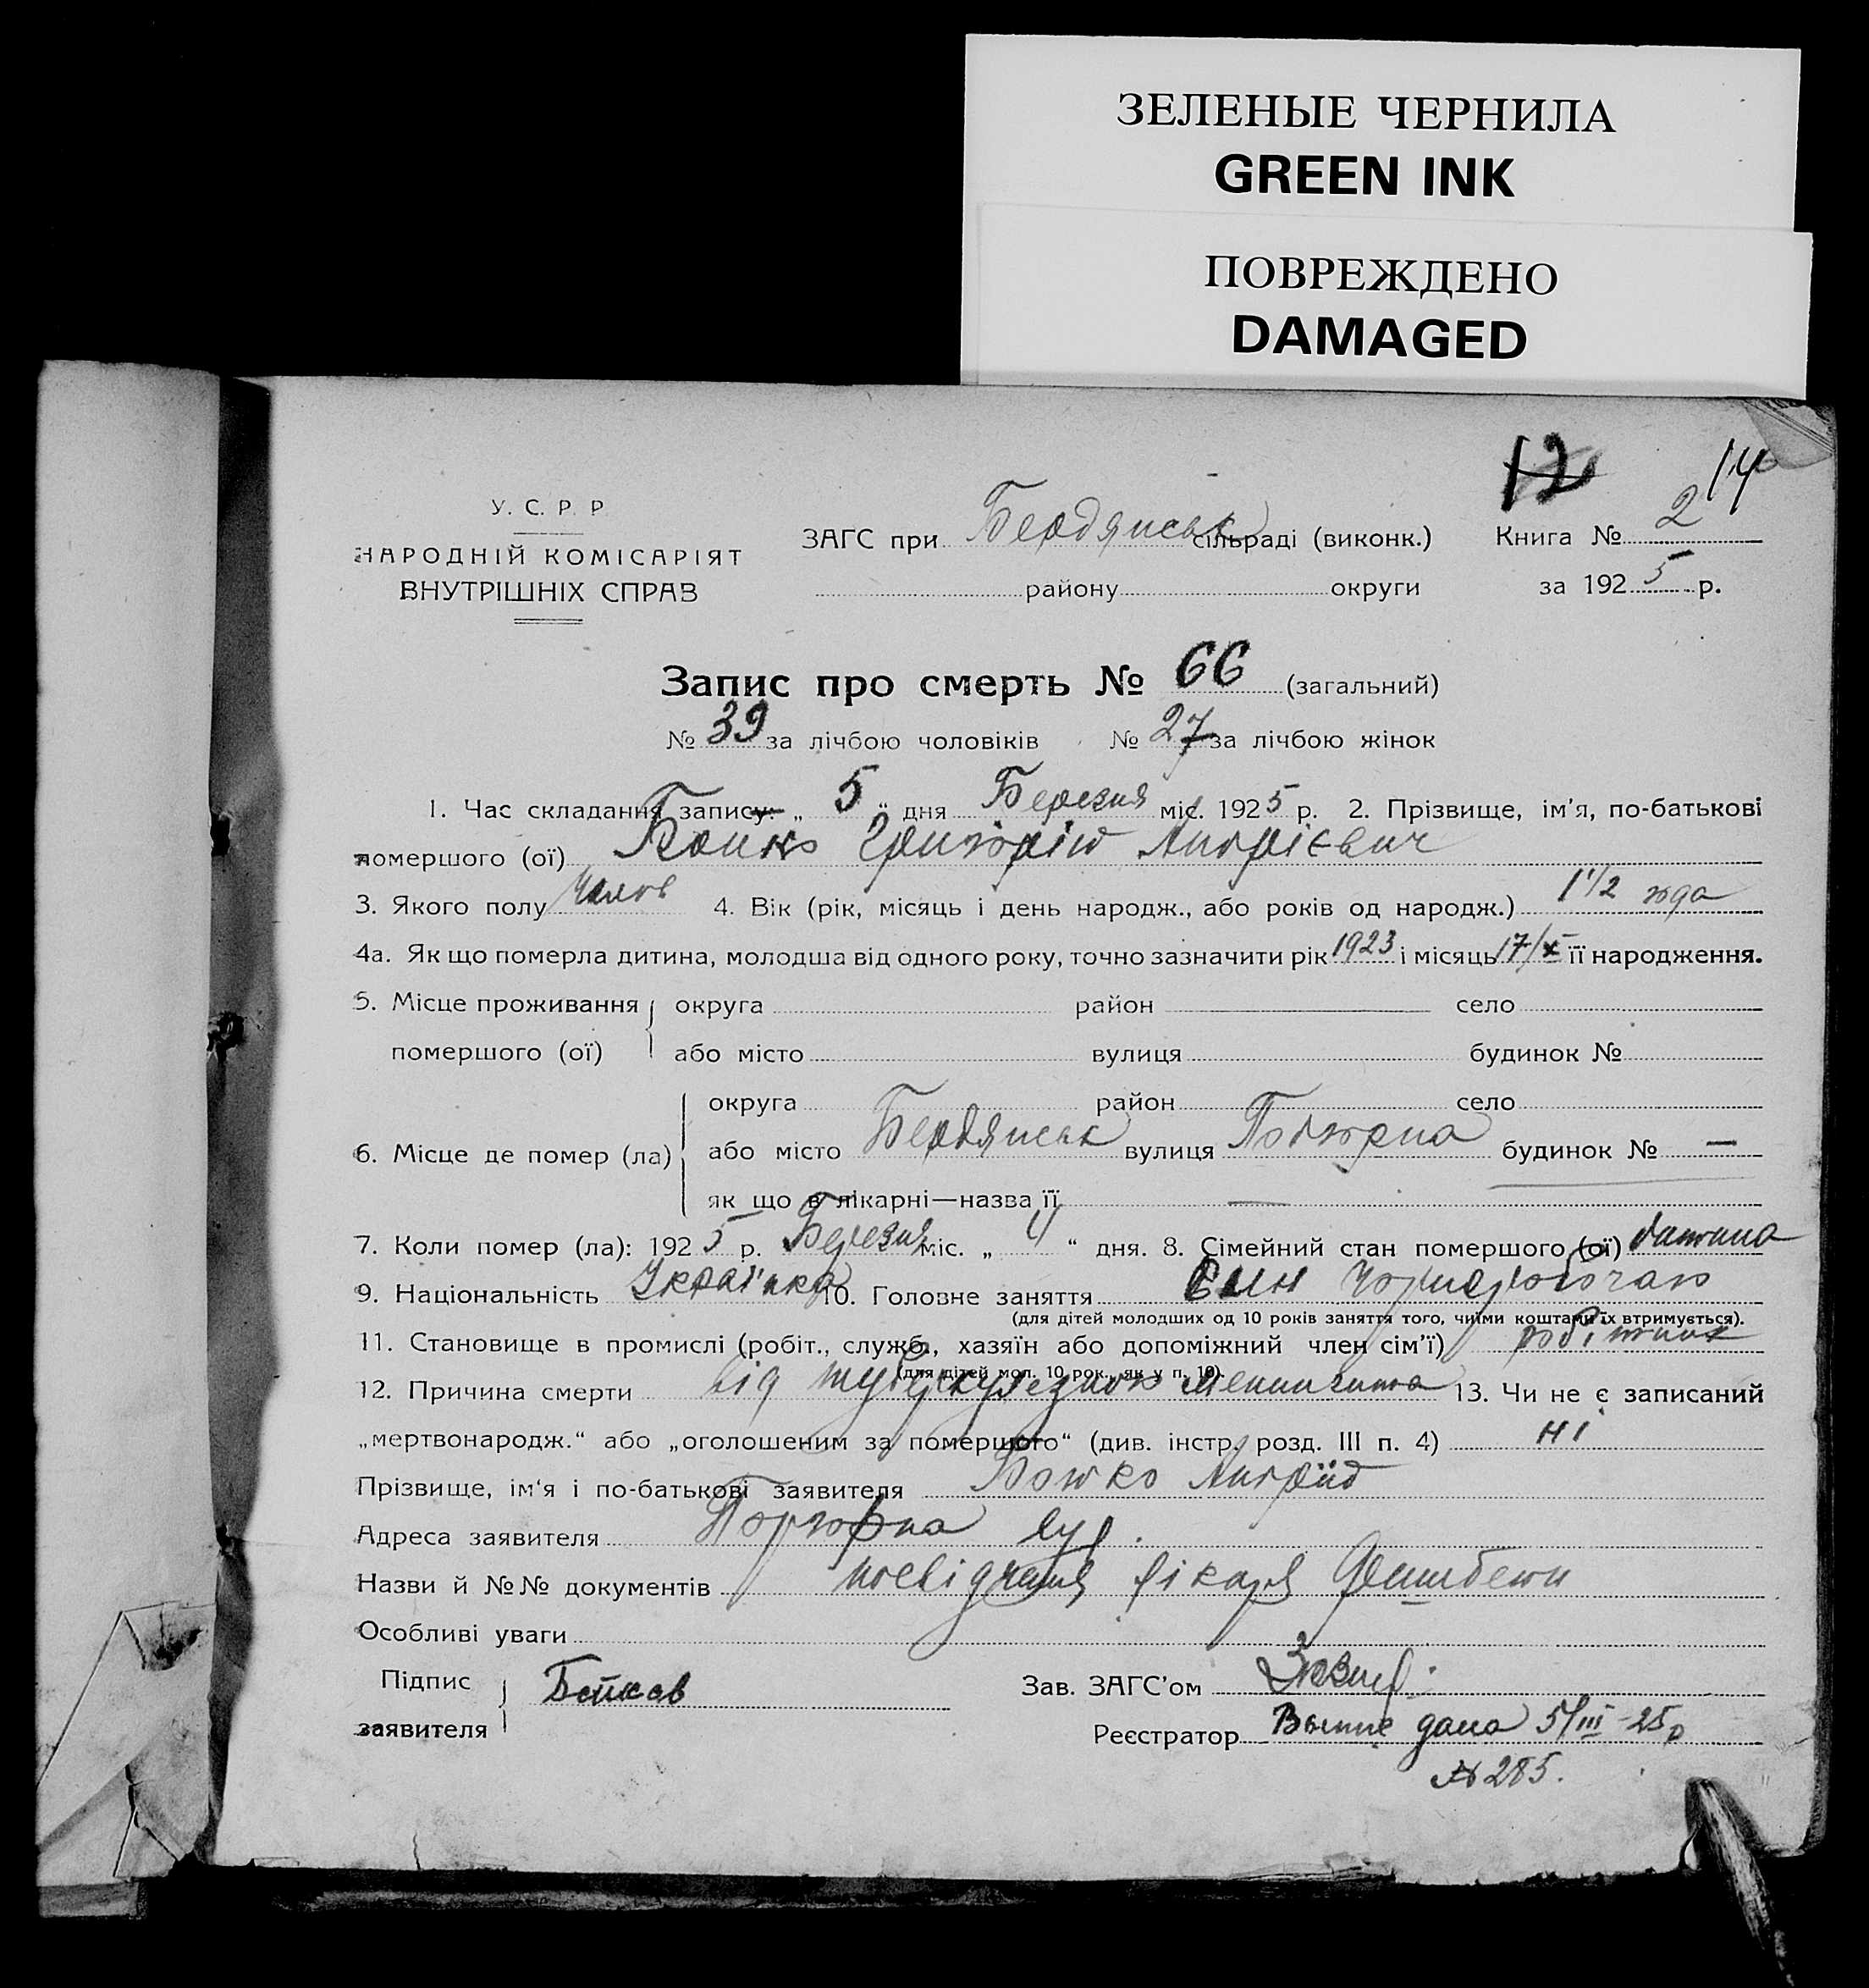 ЗЕЛЕНЫЕ ЧЕРНИЛА
GREEN INK
ПОВРЕЖДЕНО
DAMAGED
12 14
У. С. Р. Р
НАРОДНІЙ КОМІСАРІЯТ
ВНУТРІШНІХ СПРАВ
ЗАГС при Бердянськ сільраді (виконк.) Книга № 2
району округи за 1925 р.
Запис про смерть № 66 (загальний)
№ 39 за лічбою чоловіків № 27 за лічбою жінок
1. Час складання запису: „ 5 “ дня Березня міс. 1925 р. 2. Прізвище, ім'я, по-батькові
помершого (ої) Григорій Андрієвич
3. Якого полу Чолов 4. Вік (рік, місяць і день народж., або років од народж.) 1 1/2 года
4а. Як що померла дитина, молодша від одного року, точно зазначити рік 1923 і місяць 17/X її народження.
5. Місце проживання округа район село
помершого (ої) або місто вулиця будинок №
округа район село
6. Місце де помер (ла) або місто Бердянськ вулиця Подгорна будинок № —
як що в лікарні—назва її —
7. Коли помер (ла): 1925 р. Березня міс. „ 4 “ дня. 8. Сімейний стан помершого (ої) дитина
9. Національність Українка 10. Головне заняття Син Чорноробочаго
(для дітей молодших од 10 років заняття того, чиїми коштами їх втримується).
11. Становище в промислі (робіт., служб., хазяїн або допоміжний член сім'ї) робітник
(для дітей мол. 10 рок., як у п. 10).
12. Причина смерти від туберкулезнок менингита 13. Чи не є записаний
„мертвонародж.“ або „оголошеним за помершого“ (див. інстр. розд. III п. 4) ні
Прізвище, ім'я і по-батькові заявителя Андрій
Адреса заявителя Подгорна вул.
Назви й №№ документів посвідчення лікаря
Особливі уваги
Підпис Зав. ЗАГС'ом
заявителя Реєстратор дана 5/III-25р
№ 285.